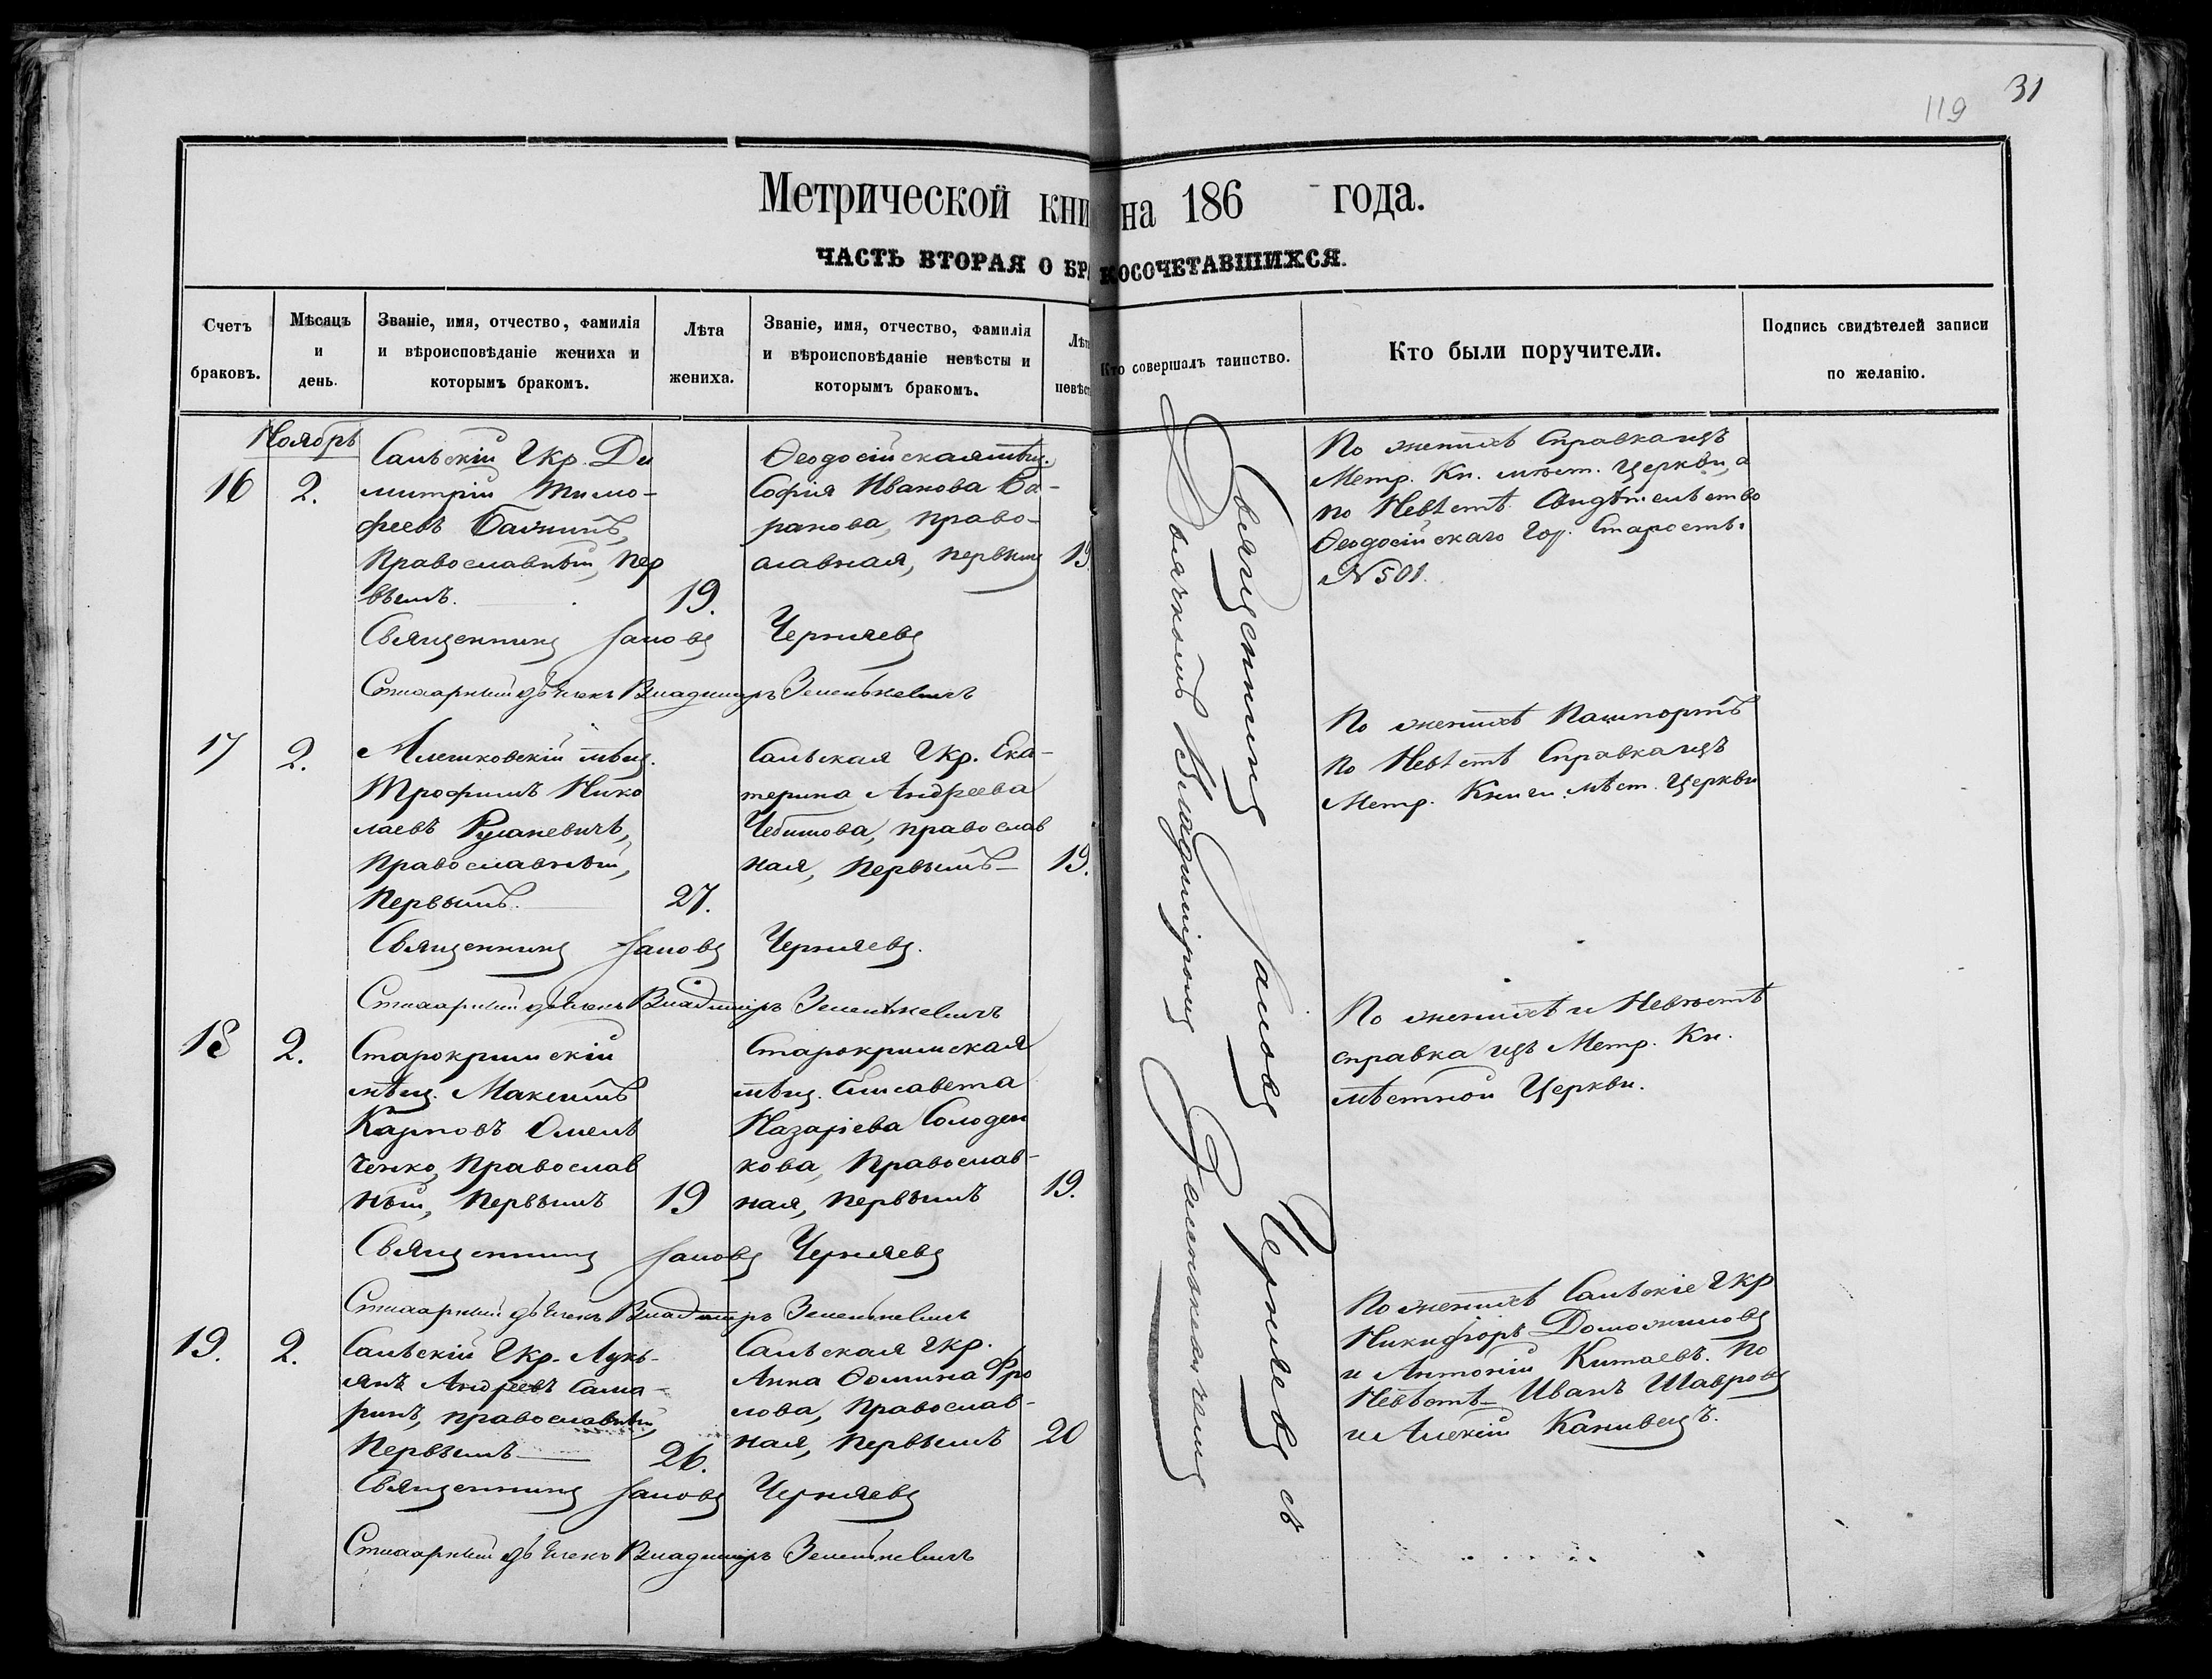 31
119
Метрической кни на 186 года.
ЧАСТЬ ВТОРАЯ О БРАКОСОЧЕТАВШИХСЯ.
Счетъ браковъ.
Мѣсяцъ и день.
Званіе, имя, отчество, фамилія
и вѣроисповѣданіе жениха и
которымъ бракомъ.
Лѣта
жениха.
Званіе, имя, отчество, фамилія
и вѣроисповѣданіе невѣсты и
которымъ бракомъ.
Лѣт
невѣст
Кто совершалъ таинство.
Кто были поручители.
Подпись свидѣтелей записи
по желанію.
Ноябрь
16
2.
Сальскій Гкр. Ди
митрій Тимо-
феевъ
Православный, пер
вымъ.
19.
Ѳеодосійская мѣщ.
Софія Иванова Ба-
ранова, право-
славная, первымъ
19.
По женихѣ Справка изъ
Метр. Кн. мѣст. Церкви, а
по Невѣстѣ Свидѣтельство
Ѳеодосійскаго Гор. Старосты
№ 501.
Священникъ Іаковъ Черняевъ
Стихарный дьячекъ Владиміръ Зеленкевичъ
17
2.
Алешковскій мѣщ.
Трофимъ Нико
лаевъ
Православный,
Первымъ.
27.
Сальская Гкр. Ека-
терина Андреева
Чебишова, православ
ная, Первымъ
19.
По женихѣ Пашпортъ
по Невѣстѣ Справка изъ
Метр. Книги мѣст. Церкви
Священникъ Іаковъ Черняевъ.
Стихарный дьячекъ Владиміръ Зеленкевичъ
18
2.
Старокрымскій
мѣщ. Максимъ
Карповъ Омель
ченко, Православ
ный, Первымъ
19
Старокрымская
мѣщ. Елисавета
Назаріева Солоден
кова, Православ-
ная, первымъ
19.
По женихѣ и Невѣстѣ
справка изъ Метр. Кн.
мѣстной Церкви.
Священникъ Іаковъ Черняевъ
Стихарный дьячекъ Владиміръ Зеленкевичъ
19.
2.
Сальскій Гкр. Лукь-
янъ Андреевъ Сама-
ринъ, православный,
Первымъ
26.
Сальская Гкр.
Анна Ѳомина Фро
лова, Православ-
ная, Первымъ
20
По женихѣ Сальскіе Гкр
Никифоръ Доможиловъ
и Антоній Китаевъ. По
Невѣстѣ Иванъ Шавровъ
и Алексій Канивецъ.
Священникъ Іаковъ Черняевъ
Стихарный дьячекъ Владиміръ Зеленкевичъ
Священникъ Іаковъ Черняевъ съ
Дьячкомъ Владиміромъ Зеленкевичемъ